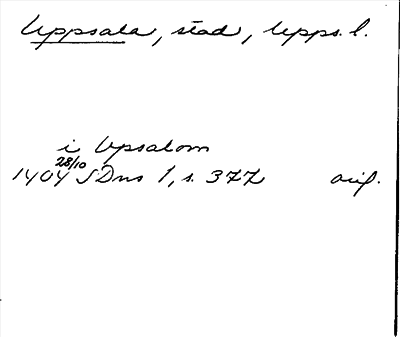 Uppsala, stad, Upps. l.
i Upsalom
1404 28/10 SDns 1, s. 377 orig.